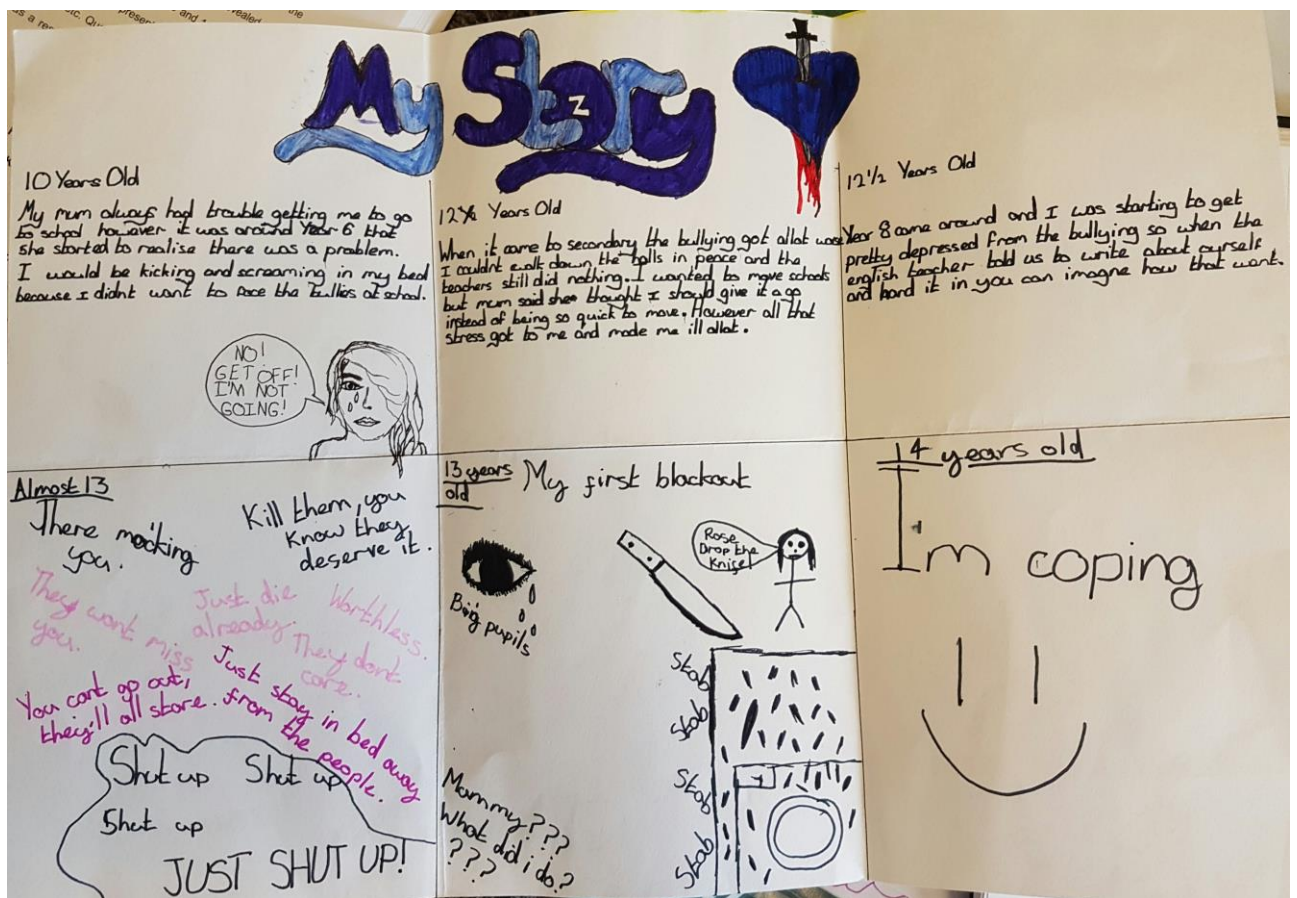 My Story
10 Years Old
My mum always had trouble getting me to go
to school however it was around Year 6 that
she started to realise there was a problem.
I would be kicking and screaming in my bed
because I didnt want to face the bullies at school.
NO!
GET OFF!
I'M NOT
GOING!
12 Years Old
When it came to secondary the bullying got allot
I couldnt walk down the halls in peace and the
teachers still did nothing. I wanted to move schools
but mum said she thought I should give it a go
instead of being so quick to move. However all that
stress got to me and made me ill allot.
12 1/2 Years Old
Year 8 came around and I was starting to get
pretty depressed from the bullying so when the
english teacher told us to write about ourself
and hand it in you can imagne how that went.
Almost 13
There mocking
you.
Kill them, you
know they
deserve it.
They wont miss
you.
Just die
already.
Worthless.
They dont
care.
You cant go out,
they'll all stare.
Just stay in bed away
from the people.
Shut up Shut up
Shut up
JUST SHUT UP!
13 years
old
My first blackout
Big pupils
Rose
Drop the
Knife!
Stab
Stab
Stab
Stab
Mammy???
What did i do?
???
14 years old
I'm coping